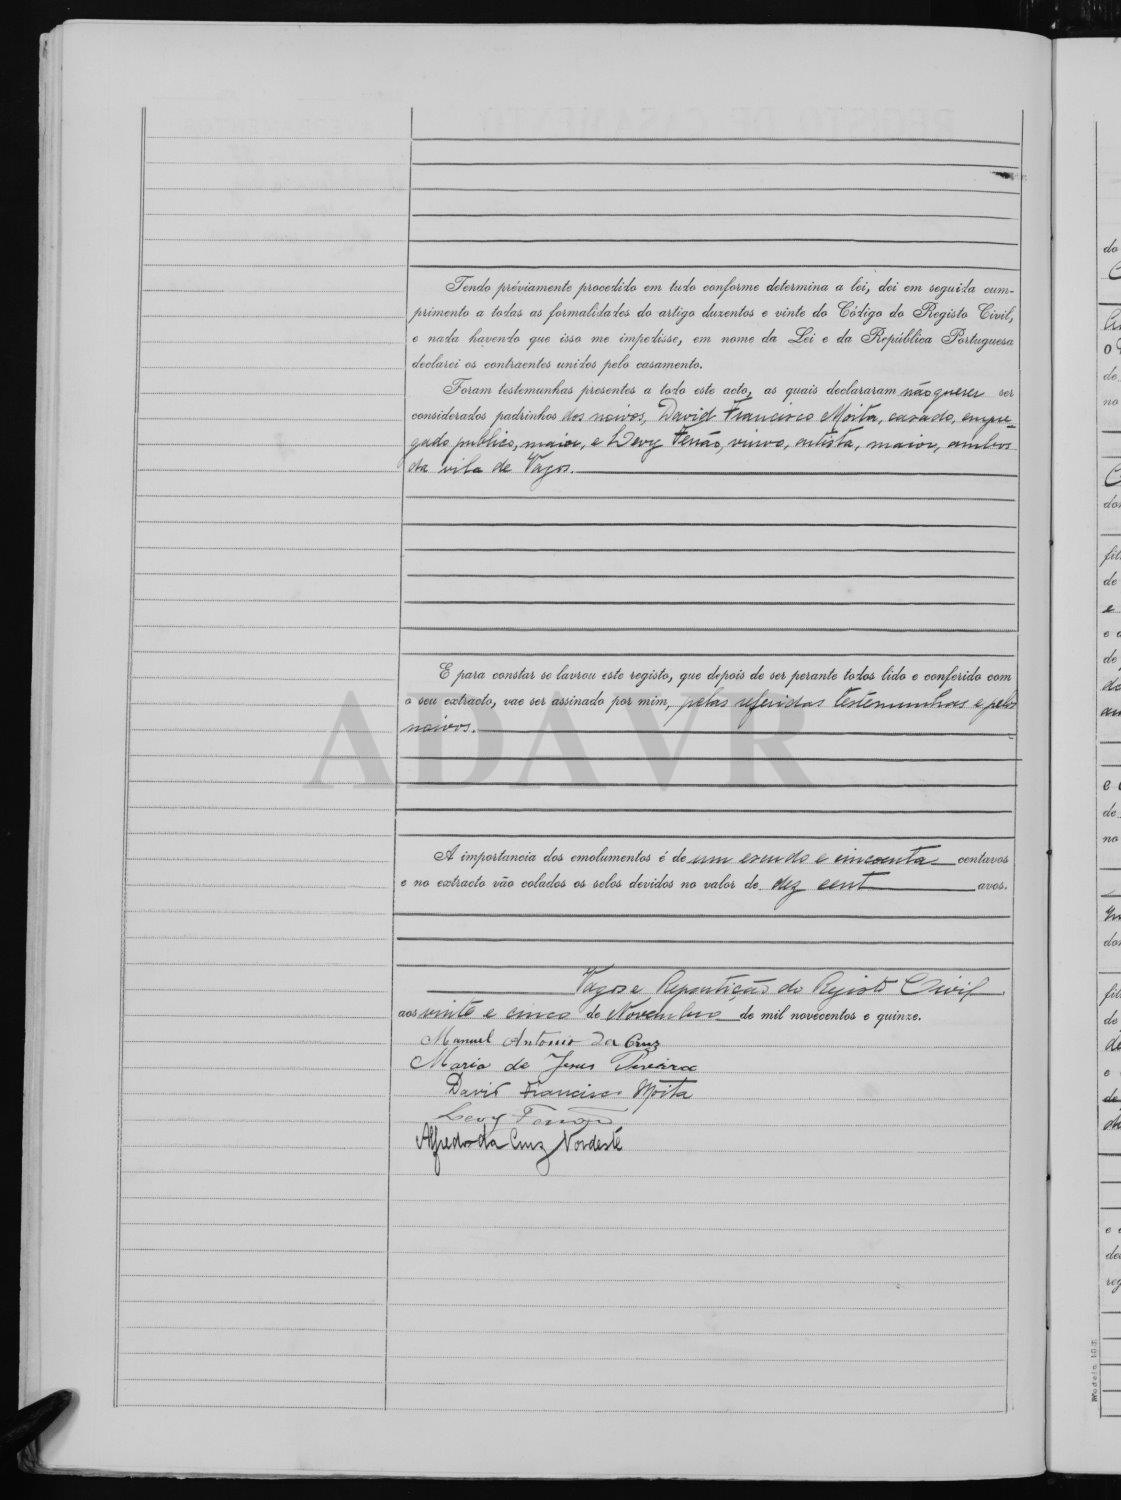 Tendo préviamente procedido em tudo conforme determina a lei, dei em seguida cum-
primento a todas as formalidades do artigo duzentos e vinte do Código do Registo Civil,
e nada havendo que isso me impedisse, em nome da Lei e da República Portuguesa
declarei os contraentes unidos pelo casamento.
Foram testemunhas presentes a todo este acto, as quais declararam não querer ser
considerados padrinhos dos noivos, David Francisco Moita, casado, empre-
gado publico, maior, e Levy Ferrão, viuvo, artista, maior, ambos
da vila de Vagos.
E para constar se lavrou este registo, que depois de ser perante todos lido e conferido com
o seu extracto, vae ser assinado por mim, pelas referidas testemunhas e pelos
noivos.
ADAVR
A importancia dos emolumentos é de um escudo e cincoenta centavos
e no extracto vão colados os selos devidos no valor de dez cent avos.
Vagos e Repartição do Registo Civil
aos vinte e cinco de Novembro de mil novecentos e quinze.
Manuel Antonio Da Cruz
Maria de Jesus
David Francisco Moita
Levy Ferrão
Alfredo da Cruz Nordeste
do
de
no
filh
de
e
de
no
Modelo